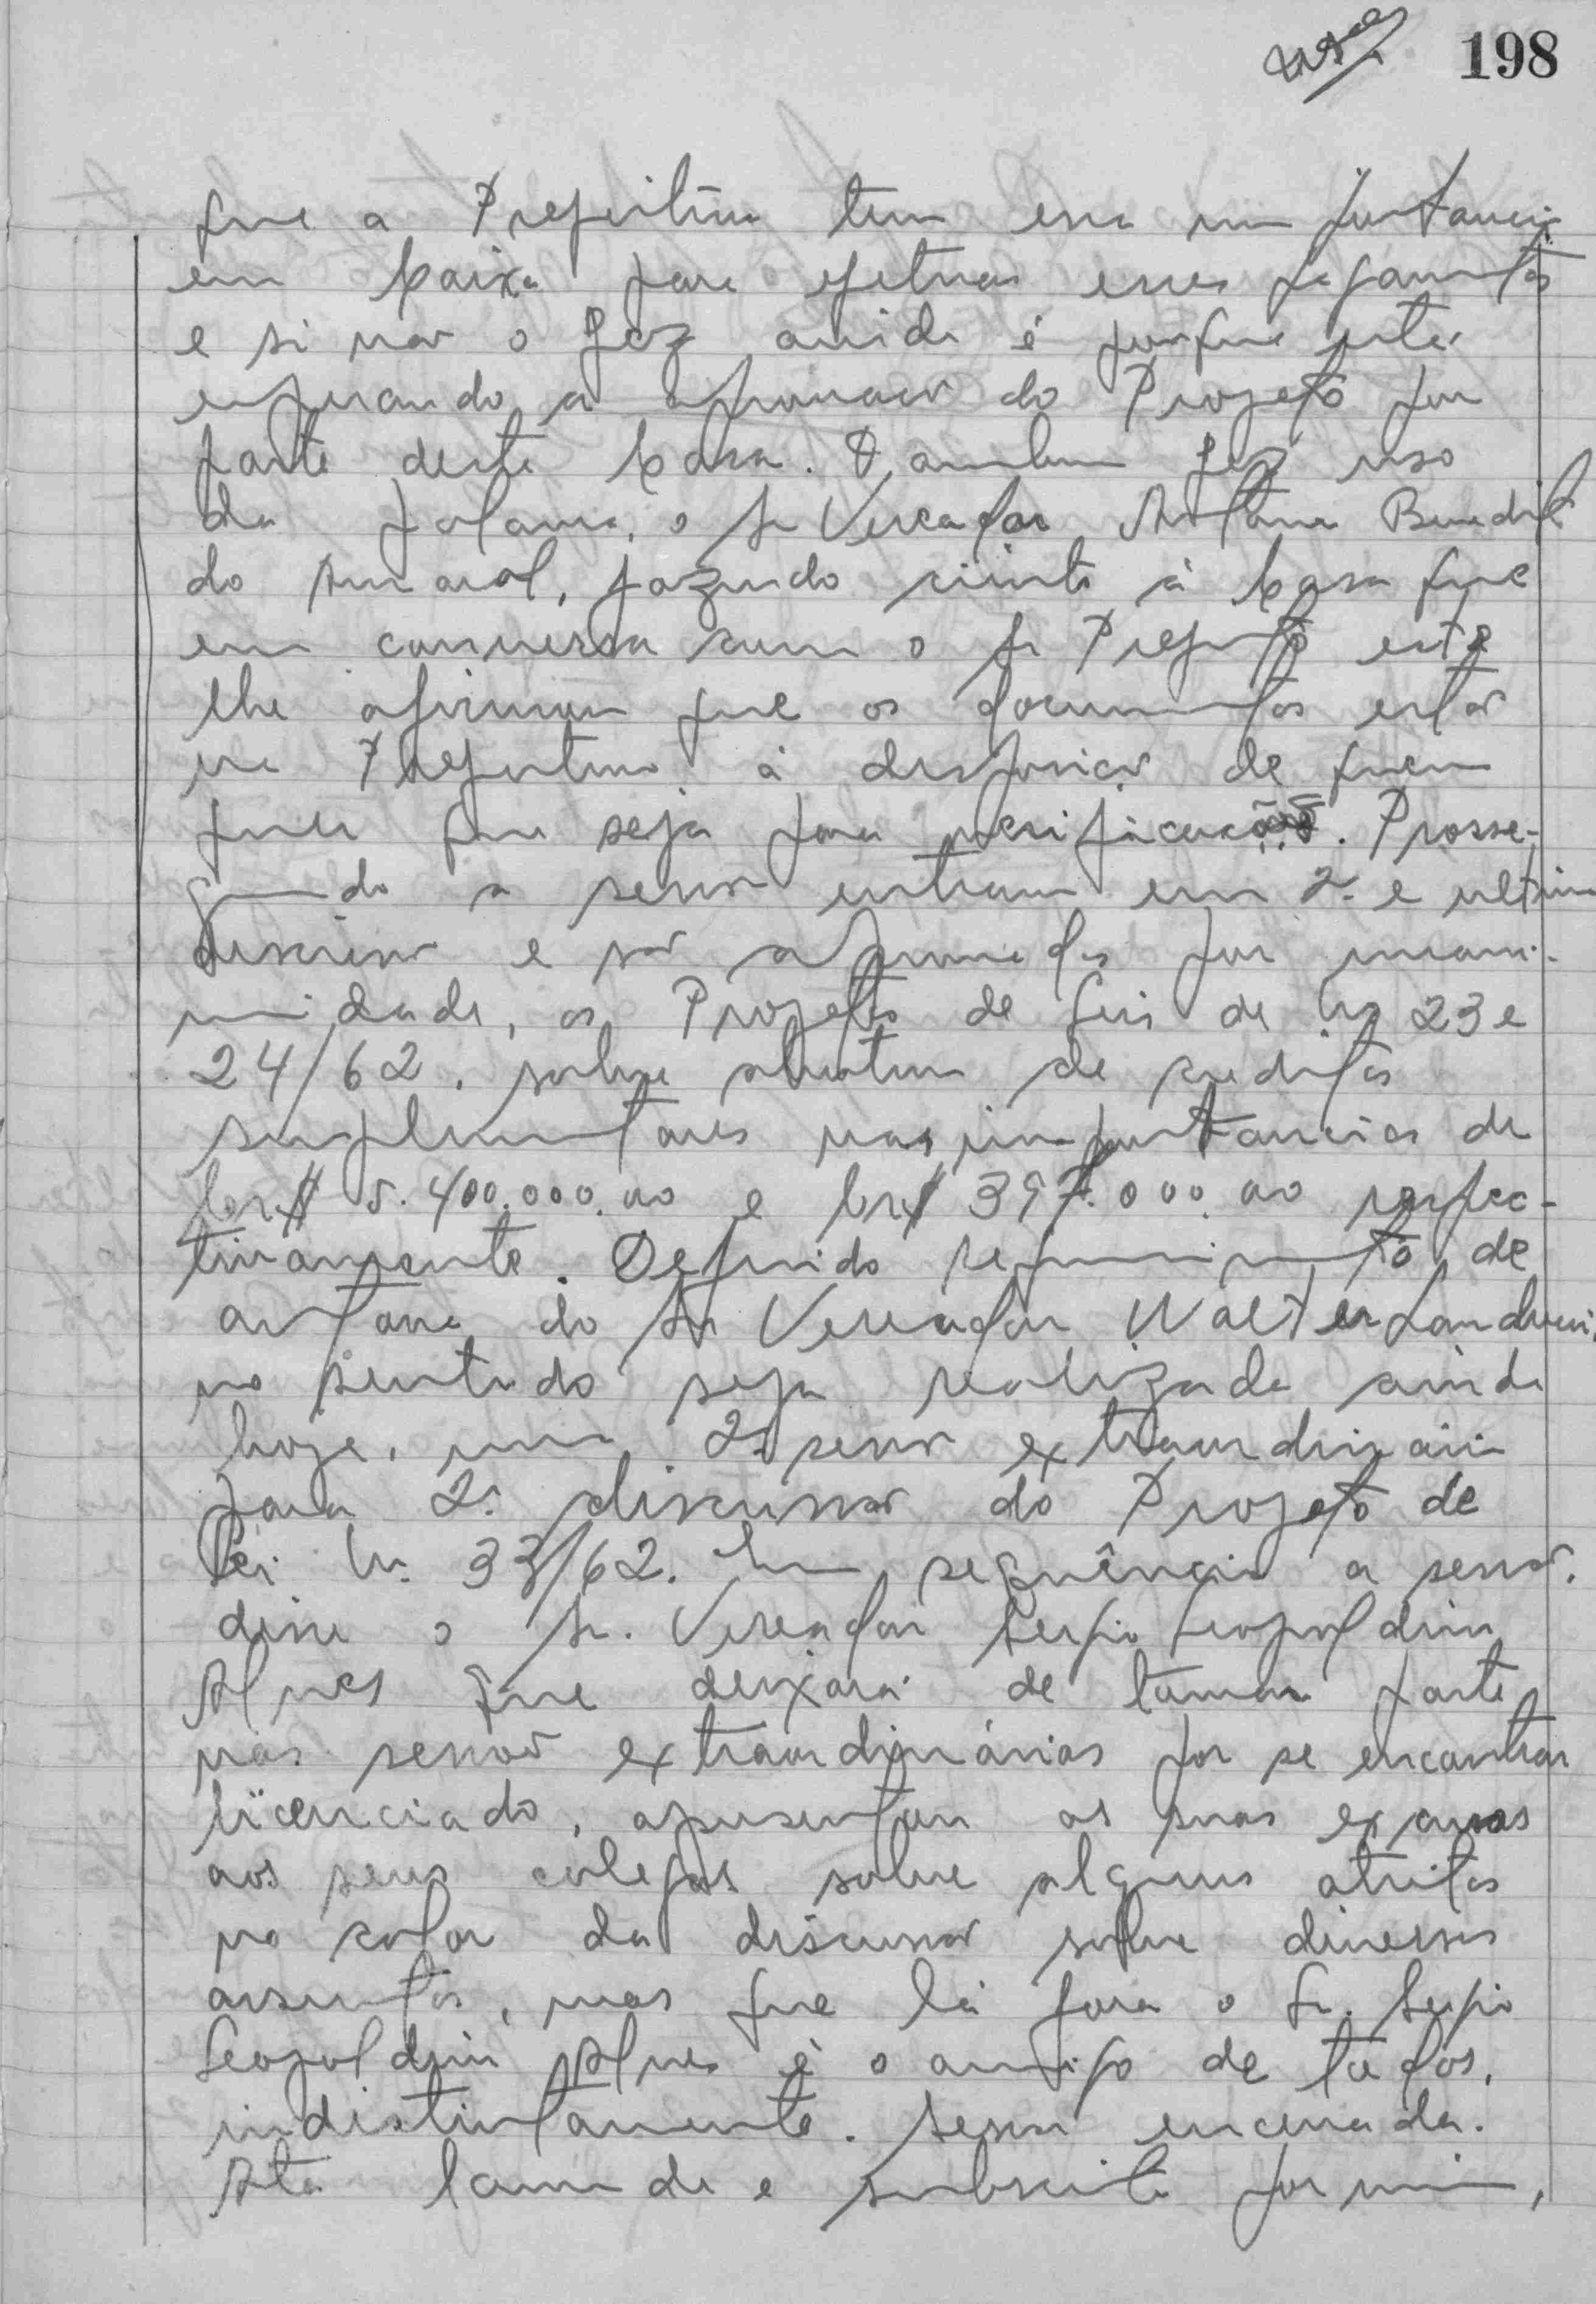 198
que a Prefeitura tem essa importancia
em Caixa para efetuar esses pagamentos
e si não o fez ainda é porque está
esperando a aprovação do Projeto por
parte desta Casa. Tambem fez uso
da palavra, o Sr Vereador Antonio Benedito
do Amaral, fazendo ciente à Casa que
em conversa com o Sr Prefeito este
lhe afirmou que os documentos estão
na Prefeitura à disposição de quem
quer que seja para verificação. Prosse-
guindo a sessão entram em 2ª e ultima
discussão e são aprovados por unani-
midade, os Projetos de Leis de Nº 23 e
24/62, sobre abertura de creditos
suplementares nas importancias de
Cr$ 5.400.000,00 e Cr$ 397.000,00 respec-
tivamente. Deferido requerimento de
autoria do Sr Vereador Walter
no sentido seja realizada ainda
hoje, uma 2ª sessão extraordinária
para 2ª discussão do Projeto de
Lei Nº 33/62. Em sequência a sessão,
disse o Sr. Vereador Sergio Leopoldino
Alves que deixará de tomar parte
nas sessões extraordinárias por se encontrar
licenciado, apresentou as suas excusas
aos seus colegas sobre alguns atritos
no calor da discussão sobre diversos
assuntos, mas que lá fora o Sr. Sergio
Leopoldino Alves é o amigo de todos,
indistintamente. Sessão encerrada.
Ata lavrada e subscrita por mim,